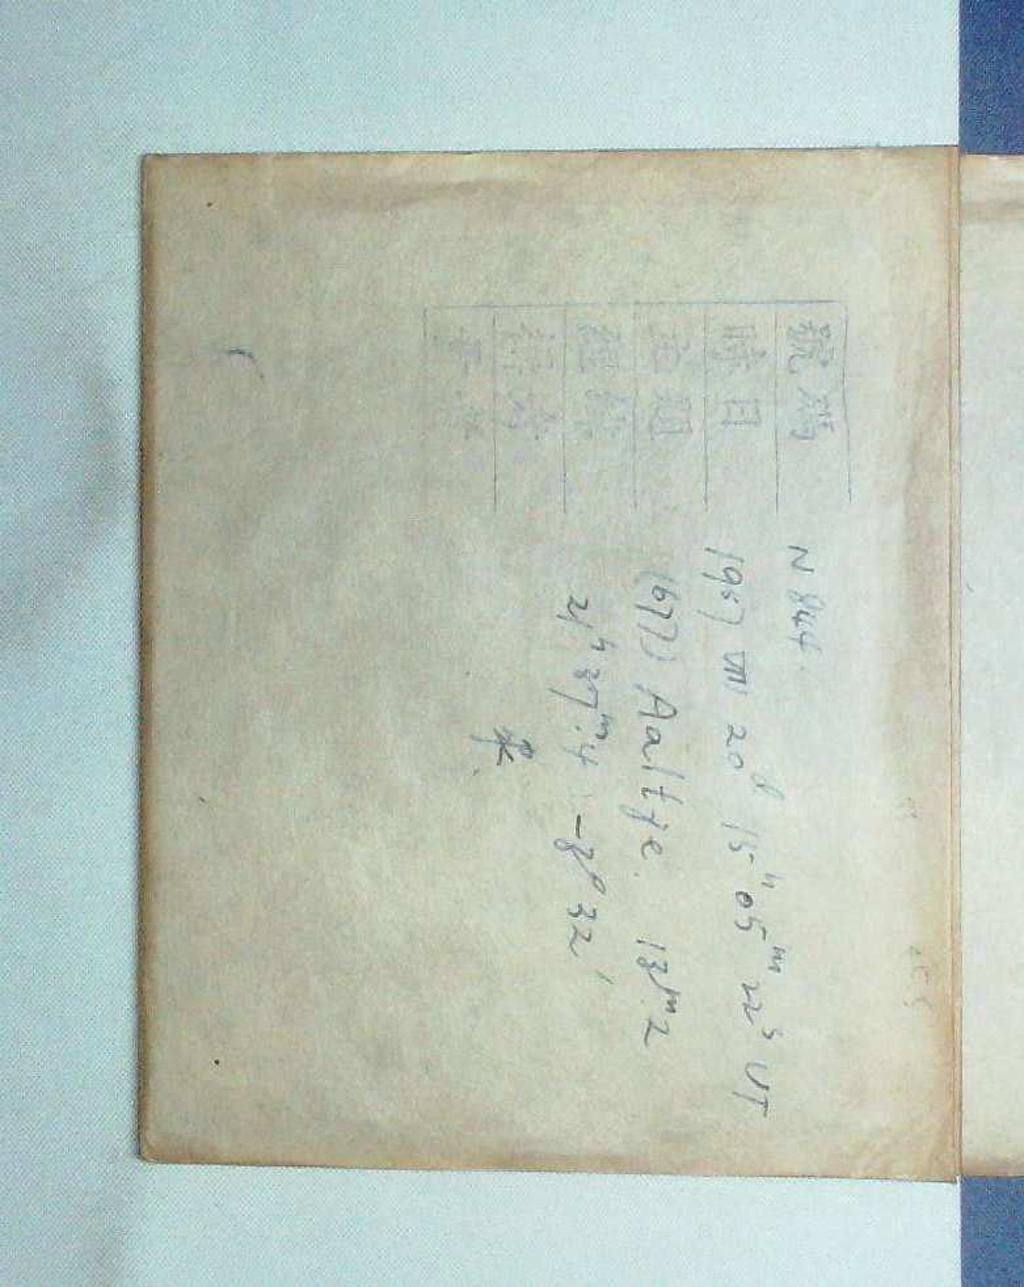 號碼 N 844.
時日 1957 VIII 20ᵈ 15ʰ05ᵐ22ˢ UT
題 (677) Aaltje. 13ᵐ.2
21ʰ37ᵐ.4 -8°32′